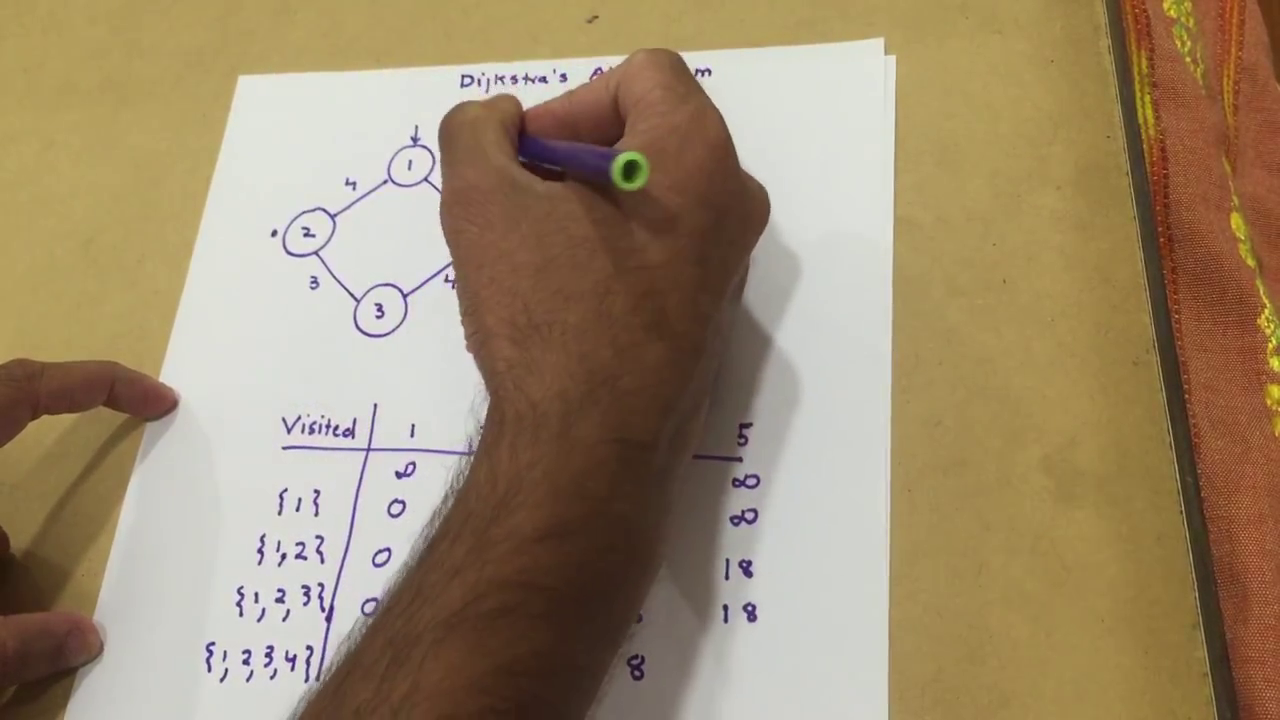 Dijkstra's
1
4
2
3
4
3
Visited 1 5
0 ∞
{1} 0 ∞
{1,2} 0 18
{1,2,3} 0 18
{1,2,3,4} 8